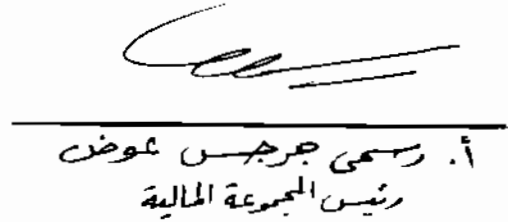 أ. رسمى جرجس عوض
رئيس المجموعة المالية